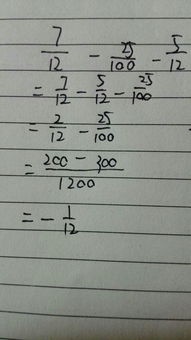 7/12 - 25/100 - 5/12
= 7/12 - 5/12 - 25/100
= 2/12 - 25/100
= (200 - 300)/1200
= - 1/12